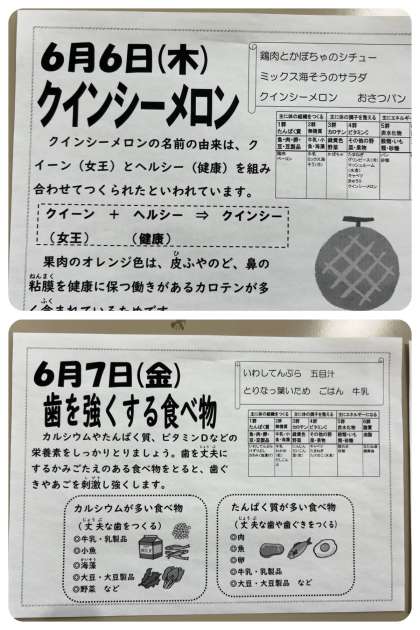 6月6日(木)
クインシーメロン
鶏肉とかぼちゃのシチュー
ミックス海そうのサラダ
クインシーメロン　おさつパン
クインシーメロンの名前の由来は、ク
イーン(女王)とヘルシー(健康)を組み
合わせてつくられたといわれています。
クイーン　＋　ヘルシー　⇒　クインシー
(女王)　(健康)
果肉のオレンジ色は、皮ふやのど、鼻の
粘膜を健康に保つ働きがあるカロテンが多
く含まれているためです
主に体の組織をつくる　主に体の調子を整える　主にエネルギー
1群　2群　3群　4群　5群
たんぱく質　無機質　カロテン　ビタミンC　炭水化物
6月7日(金)
歯を強くする食べ物
いわしてんぷら　五目汁
とりなっ葉いため　ごはん　牛乳
カルシウムやたんぱく質、ビタミンDなどの
栄養素をしっかりとりましょう。歯を丈夫に
するかみごたえのある食べ物をとると、歯ぐ
きやあごを刺激し強くします。
主に体の組織をつくる　主に体の調子を整える　主にエネルギーになる
1群　2群　3群　4群　5群　6群
たんぱく質　無機質　カロテン　ビタミンC　炭水化物　脂質
カルシウムが多い食べ物
(丈夫な歯をつくる)
◎牛乳・乳製品
◎小魚
◎海藻
◎大豆・大豆製品
◎野菜　など
たんぱく質が多い食べ物
(丈夫な歯や歯ぐきをつくる)
◎肉
◎魚
◎卵
◎牛乳・乳製品
◎大豆・大豆製品　など